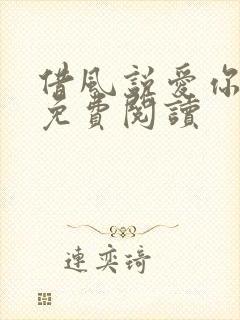 借風說愛你
免費閱讀
連奕琦